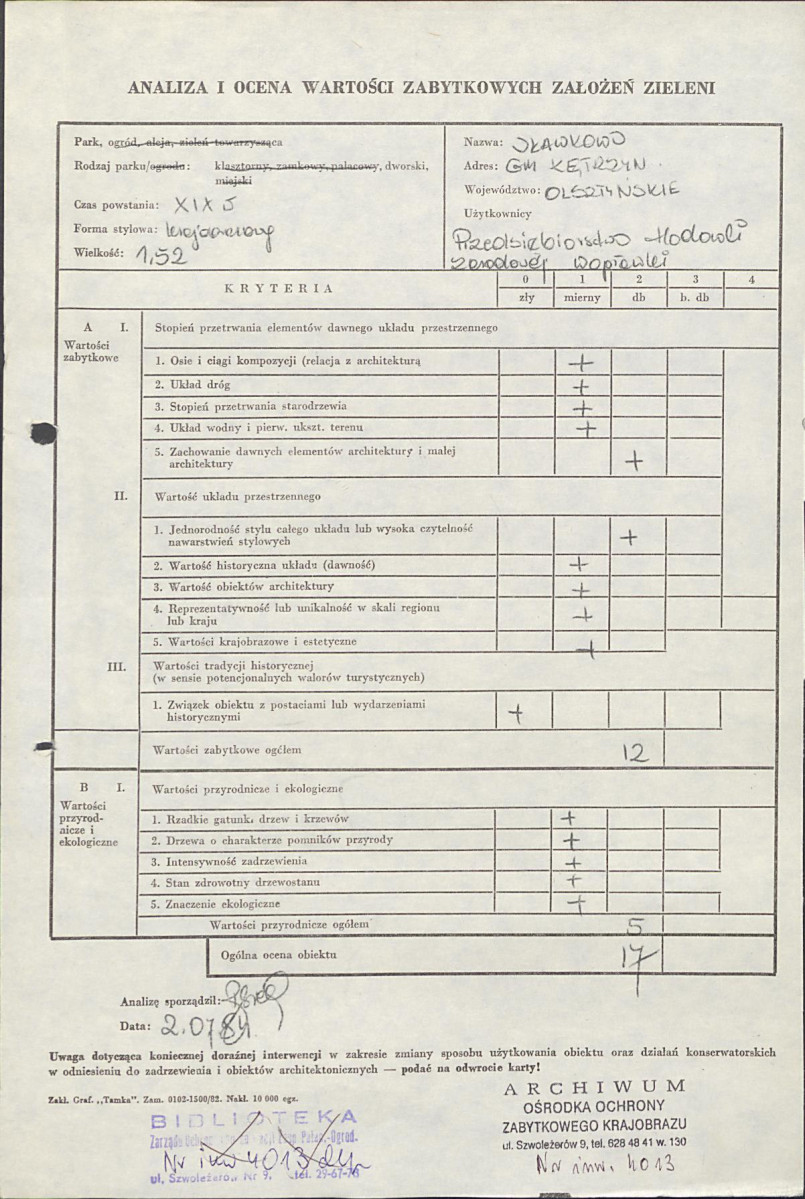 ANALIZA I OCENA WARTOŚCI ZABYTKOWYCH ZAŁOŻEŃ ZIELENI
Park, ogród, aleja, zieleń towarzysząca
Rodzaj parku/ogrodu: klasztorny, zamkowy, pałacowy, dworski,
miejski
Czas powstania: XIX
Forma stylowa: krajobrazowy
Wielkość: 1,52
Nazwa: SŁAWKOWO
Adres: GM KĘTRZYN
Województwo: OLSZTYŃSKIE
Użytkownicy
Przedsiębiorstwo Hodowli
Zarodowej Wopławki
KRYTERIA
0 1 2 3 4
zły mierny db b. db
A I. Stopień przetrwania elementów dawnego układu przestrzennego
Wartości
zabytkowe
1. Osie i ciągi kompozycji (relacja z architekturą +
2. Układ dróg +
3. Stopień przetrwania starodrzewia +
4. Układ wodny i pierw. ukszt. terenu +
5. Zachowanie dawnych elementów architektury i małej
architektury +
II. Wartość układu przestrzennego
1. Jednorodność stylu całego układu lub wysoka czytelność
nawarstwień stylowych +
2. Wartość historyczna układu (dawność) +
3. Wartość obiektów architektury +
4. Reprezentatywność lub unikalność w skali regionu
lub kraju +
5. Wartości krajobrazowe i estetyczne +
III. Wartości tradycji historycznej
(w sensie potencjonalnych walorów turystycznych)
1. Związek obiektu z postaciami lub wydarzeniami
historycznymi +
Wartości zabytkowe ogółem 12
B I. Wartości przyrodnicze i ekologiczne
Wartości
przyrod-
nicze i
ekologiczne
1. Rzadkie gatunki drzew i krzewów +
2. Drzewa o charakterze pomników przyrody +
3. Intensywność zadrzewienia +
4. Stan zdrowotny drzewostanu +
5. Znaczenie ekologiczne +
Wartości przyrodnicze ogółem 5
Ogólna ocena obiektu 17
Analizę sporządził:
Data: 2.07.84
Uwaga dotycząca koniecznej doraźnej interwencji w zakresie zmiany sposobu użytkowania obiektu oraz działań konserwatorskich
w odniesieniu do zadrzewienia i obiektów architektonicznych — podać na odwrocie karty!
Zakł. Graf. „Tamka". Zam. 0102-1500/82. Nakł. 10 000 egz.
BIBLIOTEKA
Nr inw 4013
ul. Szwoleżerów Nr 9, tel. 29-67-
ARCHIWUM
OŚRODKA OCHRONY
ZABYTKOWEGO KRAJOBRAZU
ul. Szwoleżerów 9, tel. 628 48 41 w. 130
Nr inw. 4013